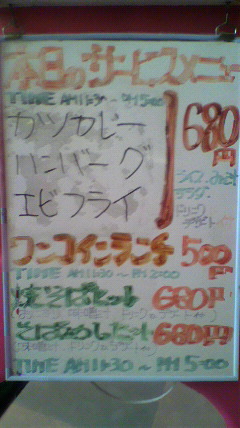 本日のサービスメニュー
TIME AM11:30～PM5:00
カツカレー
ハンバーグ
エビフライ
680円
ライス、みそ汁
サラダ、
ドリンク
デザート
ワンコインランチ 500円
TIME AM11:30～PM2:00
焼そばセット 680円
そばめしセット 680円
TIME AM11:30～PM5:00